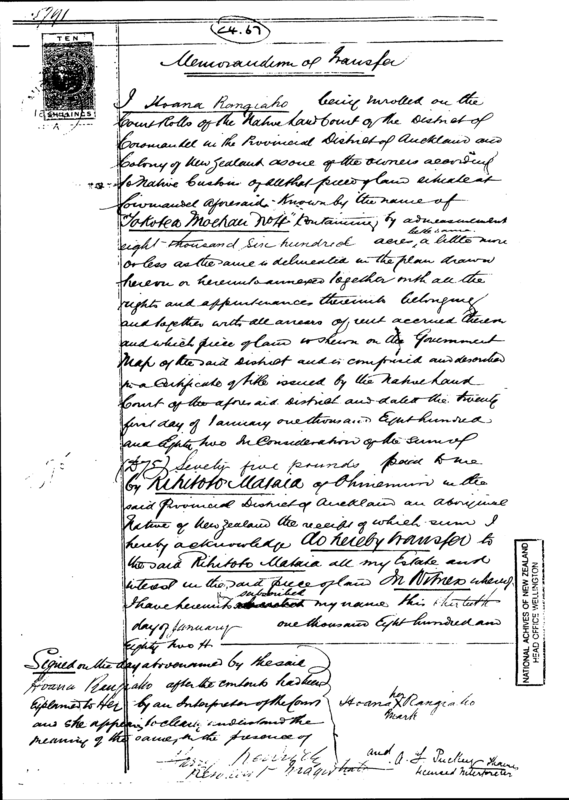 5791
C4.67
TEN
SHILLINGS
Memorandum of Transfer
I Hoana Rangiaho being enrolled on the
Court Rolls of the Native Land Court of the District of
Coromandel in the Provincial District of Auckland and
Colony of New Zealand as one of the owners according
to Native Custom of all that piece of land situate at
Coromandel aforesaid Known by the name of
"Tokotea Moehau No 4" Containing by admeasurement
eight thousand six hundred acres, a little more
or less as the same is delineated in the plan drawn
hereon or hereunto annexed together with all the
rights and appurtenances thereunto belonging
and together with all arrears of rent accrued thereon
and which piece of land is shewn on the Government
Map of the said District and is comprised and described
in a Certificate of title issued by the Native Land
Court of the aforesaid District and dated the twenty
first day of January one thousand Eight hundred
and Eighty two In Consideration of the sum of
(£75) Seventy five pounds paid to me
by Rihitoto Mataia of Ohinemuri in the
said Provincial District of Auckland an aboriginal
Native of New Zealand the receipt of which sum I
hereby acknowledge do hereby transfer to
the said Rihitoto Mataia all my Estate and
interest in the said piece of land In Witness whereof
I have hereunto subscribed my name this thirtieth
day of January one thousand Eight hundred and
Eighty two
Signed on the day above named by the said
Hoana Rangiaho after the contents had been
Explained to Her by an Interpreter of the Court
and she appearing to clearly understand the
meaning of the same, in the presence of
Hoana her X mark Rangiaho
Harry Kenrick
Resident Magistrate
and A. J. Puckey Thames
Licensed Interpreter
NATIONAL ACHIVES OF NEW ZEALAND
HEAD OFFICE WELLINGTON